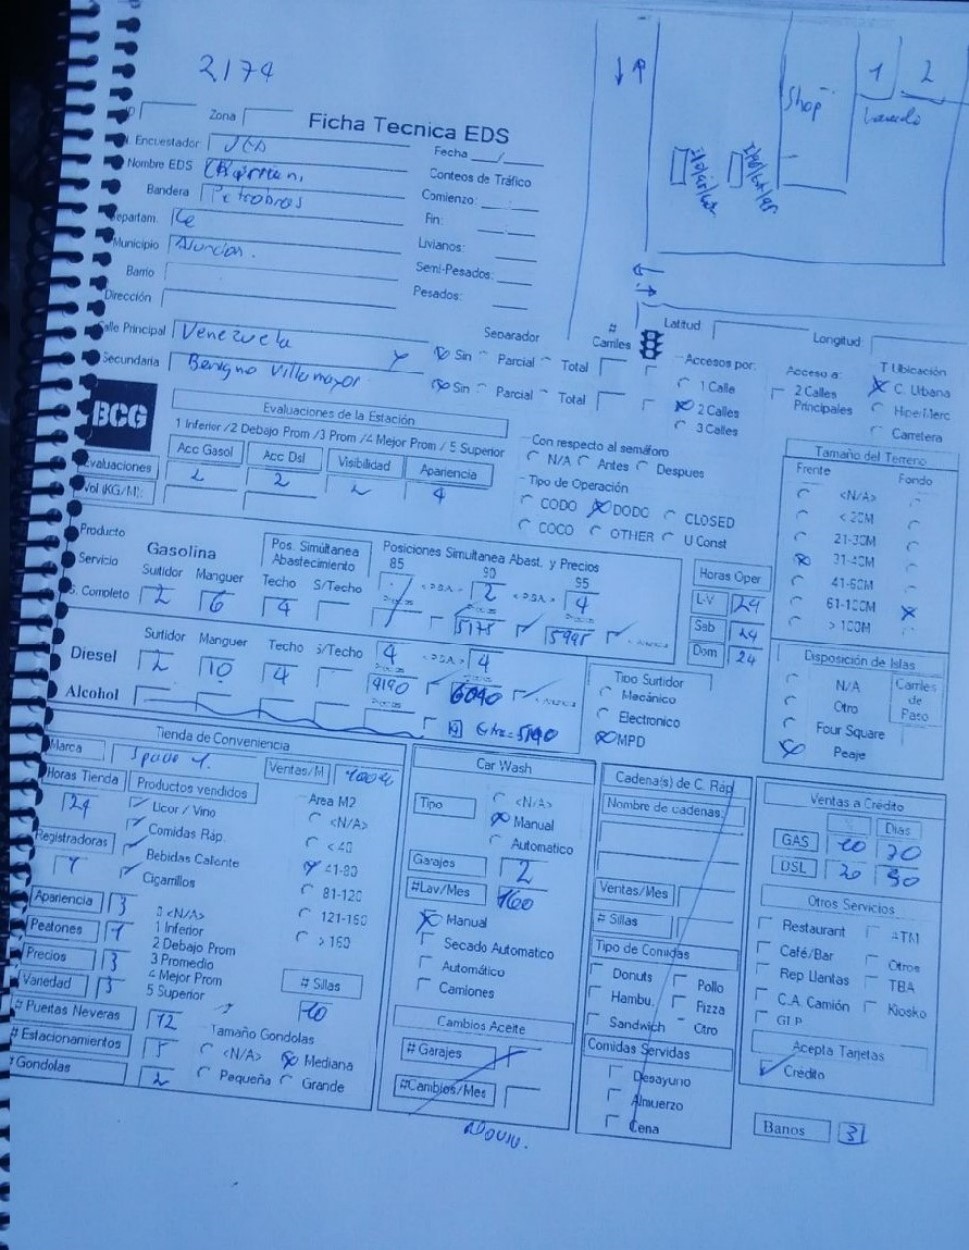 2174
↓↑
Shop
1
2
Lavado
Zona
Ficha Tecnica EDS
Encuestador
Fecha __/__
Nombre EDS
Conteos de Tráfico
Bandera Petrobras
Comienzo: __:__
Departam.
Fin: __:__
Municipio Asuncion.
Livianos:
Barrio
Semi-Pesados:
Dirección
Pesados:
Calle Principal Venezuela
Separador
# Carriles
Latitud
Longitud:
Sin Parcial Total
Secundaria Benigno Villamayor
Sin Parcial Total
Accesos por:
1 Calle
2 Calles
3 Calles
Acceso a:
2 Calles Principales
T Ubicación
C. Urbana
Hiper/Merc
Carretera
BCG
Evaluaciones de la Estación
1 Inferior /2 Debajo Prom /3 Prom /4 Mejor Prom / 5 Superior
Acc Gasol Acc Dsl Visibilidad Apariencia
Evaluaciones 2 2 2 4
Vol (KG/M):
Con respecto al semáforo
N/A Antes Despues
Tipo de Operación
CODO DODO CLOSED
COCO OTHER U Const
Tamaño del Terreno
Frente Fondo
<N/A>
< 20M
21-30M
31-40M
41-60M
61-100M
> 100M
Producto
Servicio
S. Completo
Gasolina
Surtidor Manguer
2 6
Pos. Simultanea Abastecimiento
Techo S/Techo
4
Posiciones Simultanea Abast. y Precios
85 90 95
2 4
5175 5995
Horas Oper
L-V 24
Sab 24
Dom 24
Diesel
Surtidor Manguer Techo S/Techo
2 10 4
4 4
4190 6090
Alcohol
5190
Tipo Surtidor
Mecánico
Electronico
MPD
Disposición de Islas
N/A
Otro
Four Square
Peaje
Carriles de Paso
Tienda de Conveniencia
Marca
Ventas/M
Horas Tienda 24
Productos vendidos
Licor / Vino
Comidas Ráp.
Bebidas Caliente
Cigarrillos
Registradoras 1
Area M2
<N/A>
< 40
41-80
81-120
121-160
> 160
Apariencia 3
Peatones 1
Precios 3
Variedad 3
0 <N/A>
1 Inferior
2 Debajo Prom
3 Promedio
4 Mejor Prom
5 Superior
# Sillas
10
# Puertas Neveras 12
# Estacionamientos 5
# Gondolas 2
Tamaño Gondolas
<N/A> Mediana
Pequeña Grande
Car Wash
Tipo
<N/A>
Manual
Automatico
Garajes 2
#Lav/Mes 160
Manual
Secado Automatico
Automático
Camiones
Cambios Aceite
# Garajes
#Cambios/Mes
Cadena(s) de C. Ráp
Nombre de cadenas:
Ventas/Mes
# Sillas
Tipo de Comidas
Donuts Pollo
Hambu. Pizza
Sandwich Otro
Comidas Servidas
Desayuno
Almuerzo
Cena
Ventas a Crédito
% Dias
GAS
DSL
Otros Servicios
Restaurant ATM
Café/Bar Otros
Rep Llantas TBA
C.A. Camión Kiosko
GLP
Acepta Tarjetas
Crédito
Banos 3